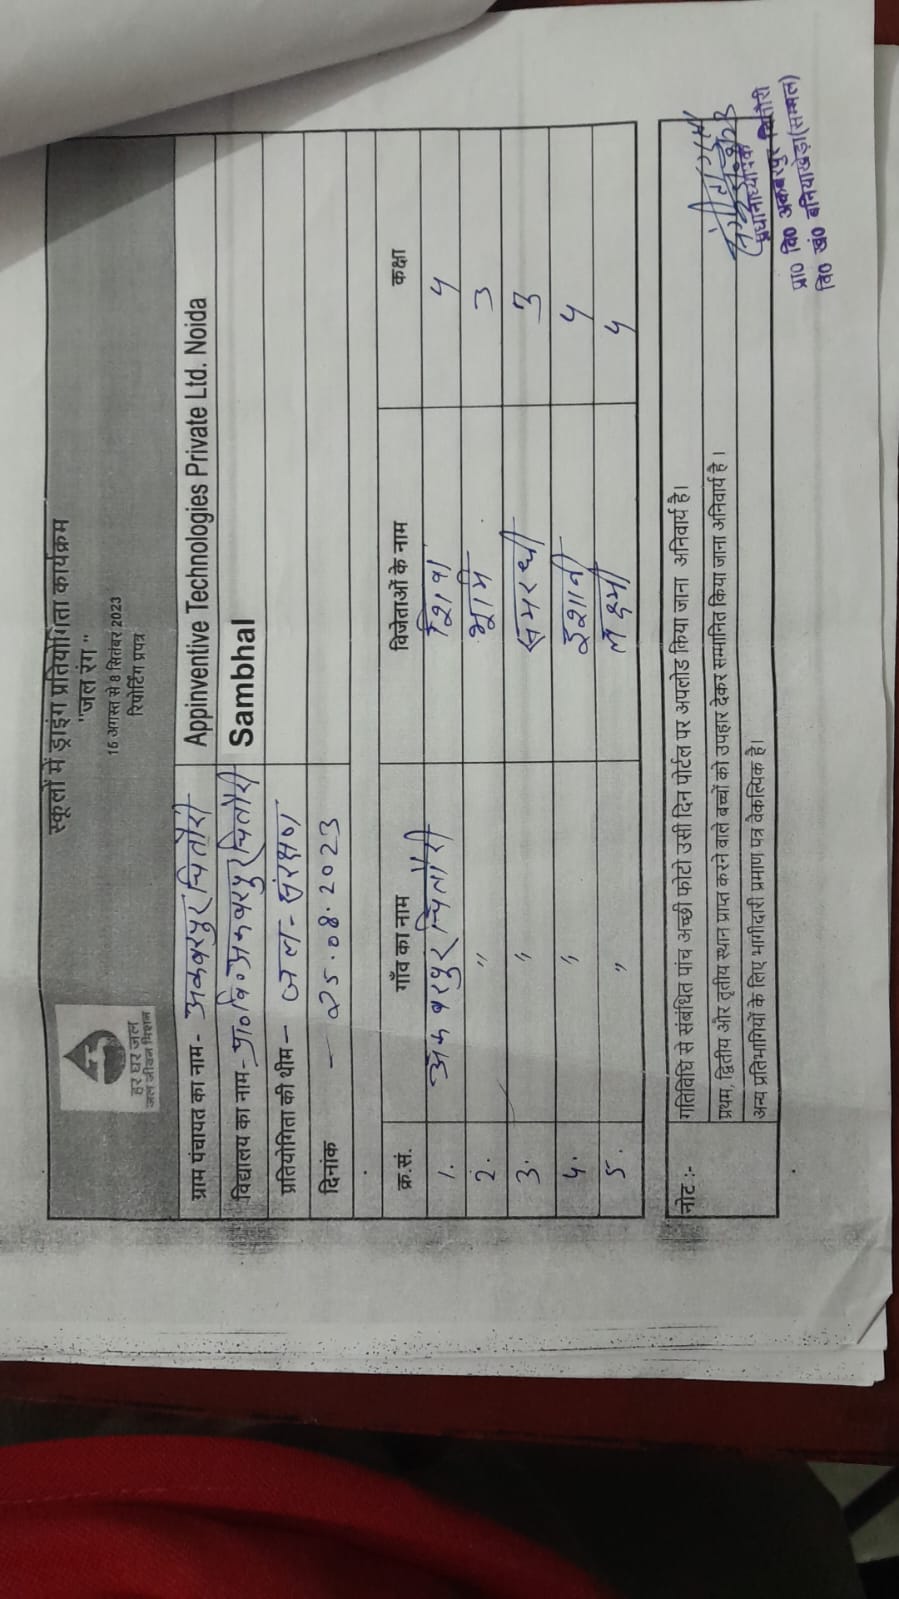 स्कूलों में ड्राइंग प्रतियोगिता कार्यक्रम
"जल रंग"
16 अगस्त से 8 सितंबर 2023
रिपोर्टिंग प्रपत्र
हर घर जल
जल जीवन मिशन
ग्राम पंचायत का नाम - अकबरपुर चितौरी Appinventive Technologies Private Ltd. Noida
विद्यालय का नाम - प्रा० वि० अकबरपुर चितौरी Sambhal
प्रतियोगिता की थीम - जल - संरक्षण
दिनांक - 25.08.2023
क्र.सं. गाँव का नाम विजेताओं के नाम कक्षा
1. अकबरपुर चितौरी शिवा 4
2. " भूमि 3
3. " समरथी 3
4. " इशानी 4
5. " लक्ष्मी 4
नोट :- गतिविधि से संबंधित पांच अच्छी फोटो उसी दिन पोर्टल पर अपलोड किया जाना अनिवार्य है।
प्रथम, द्वितीय और तृतीय स्थान प्राप्त करने वाले बच्चों को उपहार देकर सम्मानित किया जाना अनिवार्य है।
अन्य प्रतिभागियों के लिए भागीदारी प्रमाण पत्र वैकल्पिक है।
प्रधानाध्यापक
प्रा० वि० अकबरपुर चितौरी
वि० खं० बनियाखेड़ा (सम्भल)